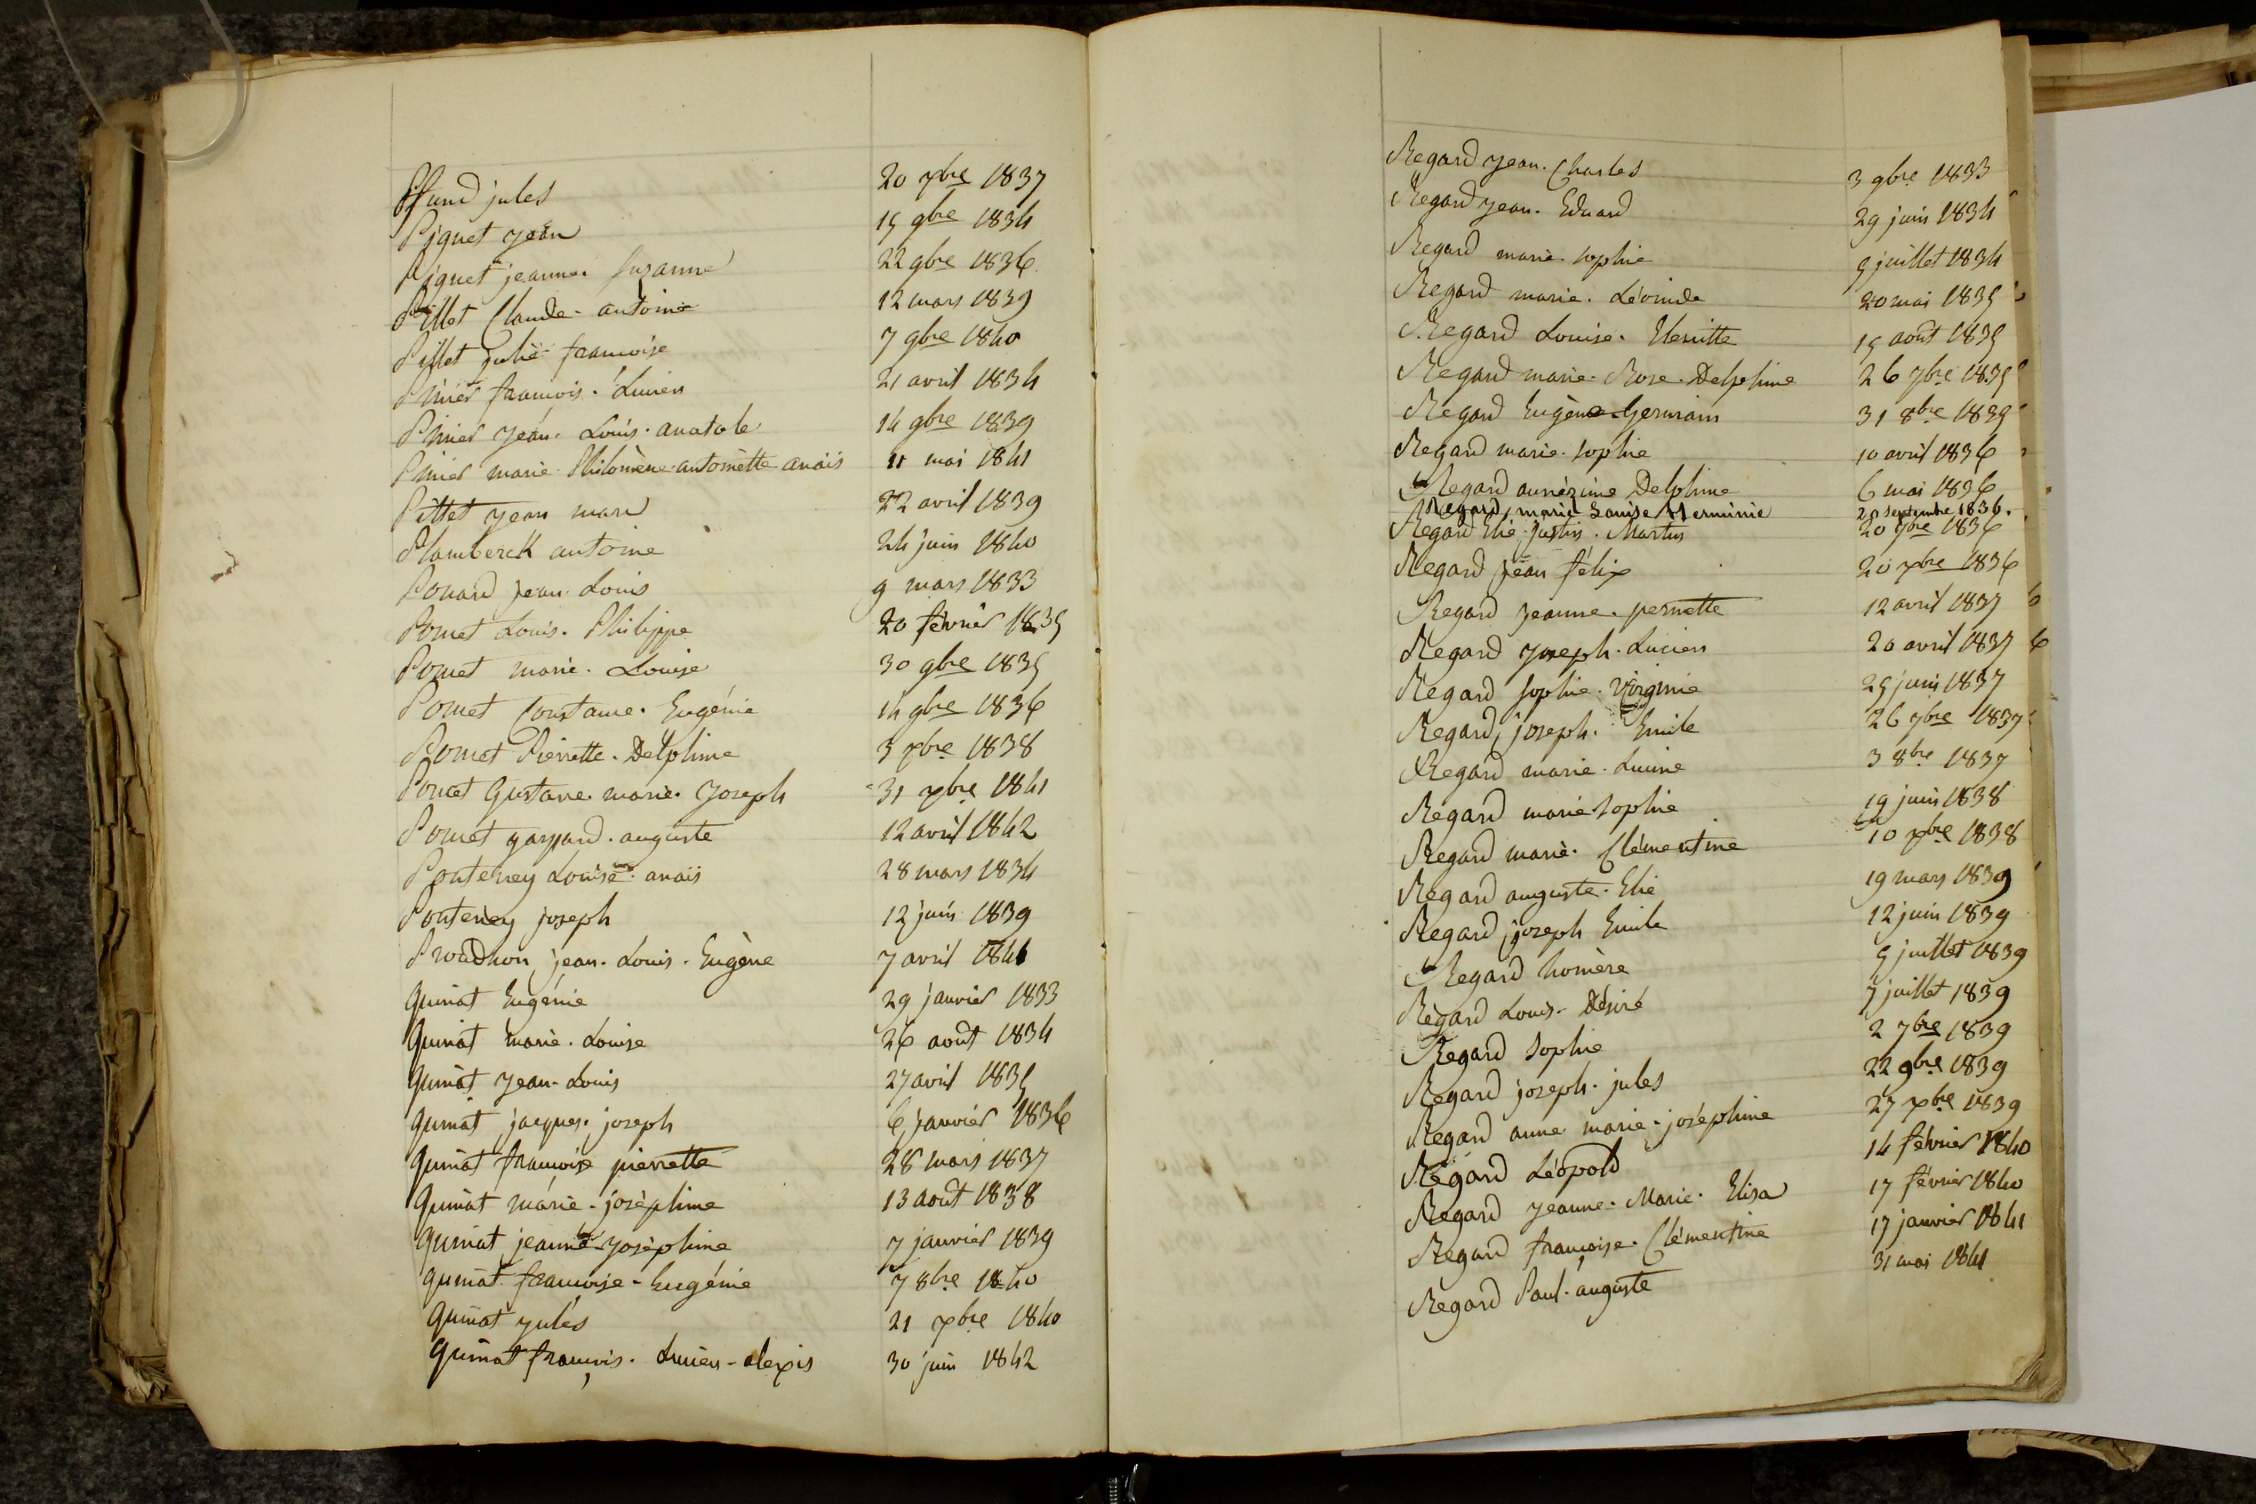 Pfund jules 20 xbre 1837
Piquet jean 15 9bre 1834
Piquet jeanne. Suzanne 22 9bre 1836
Pillet Claude. antoine 12 mars 1839
Pillet julie françoise 7 9bre 1840
Prier françois. Lucien 21 avril 1834
Prier jean. Louis. anatole 14 9bre 1839
Prier marie Philomène antoinette anaïs 11 mai 1841
Pittet jean marie 22 avril 1839
Plamberck antoine 24 juin 1840
Pouard jean Louis 9 mars 1833
Poncet Louis. Philippe 20 février 1835
Poncet marie. Louise 30 9bre 1835
Poncet Constance. Eugénie 14 9bre 1836
Poncet Pierrette. Delphine 3 xbre 1838
Poncet Gustave marie. Joseph 31 xbre 1841
Poncet gaspard. auguste 12 avril 1842
Ponteney Louise. anaïs 28 mars 1834
Ponteney joseph 12 juin 1839
Proudhon jean. Louis. Eugène 7 avril 1841
Quinat Eugénie 29 janvier 1833
Quinat marie. Louise 26 août 1834
Quinat jean. Louis 27 avril 1835
Quinat jacques. joseph 6 janvier 1836
Quinat françoise pierrette 28 mars 1837
Quinat marie. joséphine 13 août 1838
Quinat jeanne-joséphine 7 janvier 1839
Quinat françoise-Eugénie 7 8bre 1840
Quinat jules 21 xbre 1840
Quinat françois. Lucien-alexis 30 juin 1842
Regard jean. Charles 3 9bre 1833
Regard jean. Eduard 29 juin 1834
Regard marie. sophie 5 juillet 1834
Regard marie. Léonide 20 mai 1835
Regard Louise. Henritte 15 août 1835
Regard marie. Rose. Delphine 26 7bre 1835
Regard Eugène Germain 31 8bre 1835
Regard marie. sophie 10 avril 1836
Regard Delphine 6 mai 1836
Regard, marie Louise Herminie 20 septembre 1836.
Regard Elie. justin. Martin 20 9bre 1836
Regard jean félix 20 xbre 1836
Regard jeanne. pernette 12 avril 1837
Regard joseph. Lucien 20 avril 1837
Regard sophie. Virginie 25 juin 1837
Regard, joseph. Emile 26 7bre 1837
Regard marie. Lucine 3 8bre 1837
Regard marie sophie 19 juin 1838
Regard marie. Clémentine 10 xbre 1838
Regard auguste. Elie 19 mars 1839
Regard joseph Emile 12 juin 1839
Regard homère 5 juillet 1839
Regard Louis. Désiré 7 juillet 1839
Regard sophie 2 7bre 1839
Regard joseph. jules 22 9bre 1839
Regard anne marie. joséphine 27 xbre 1839
Regard Léopold 14 février 1840
Regard jeanne. Marie. Elisa 17 février 1840
Regard françoise. Clémentine 17 janvier 1841
Regard Paul. auguste 31 mai 1841